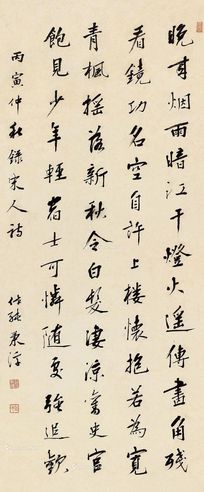 晚來烟雨暗江干燈火遥傳畫角殘
看鏡功名空自許上樓懷抱若為寬
青楓搖落新秋令白髮淒涼舊史官
飽見少年輕士可憐隨處強追歡
丙寅仲秋錄宋人詩